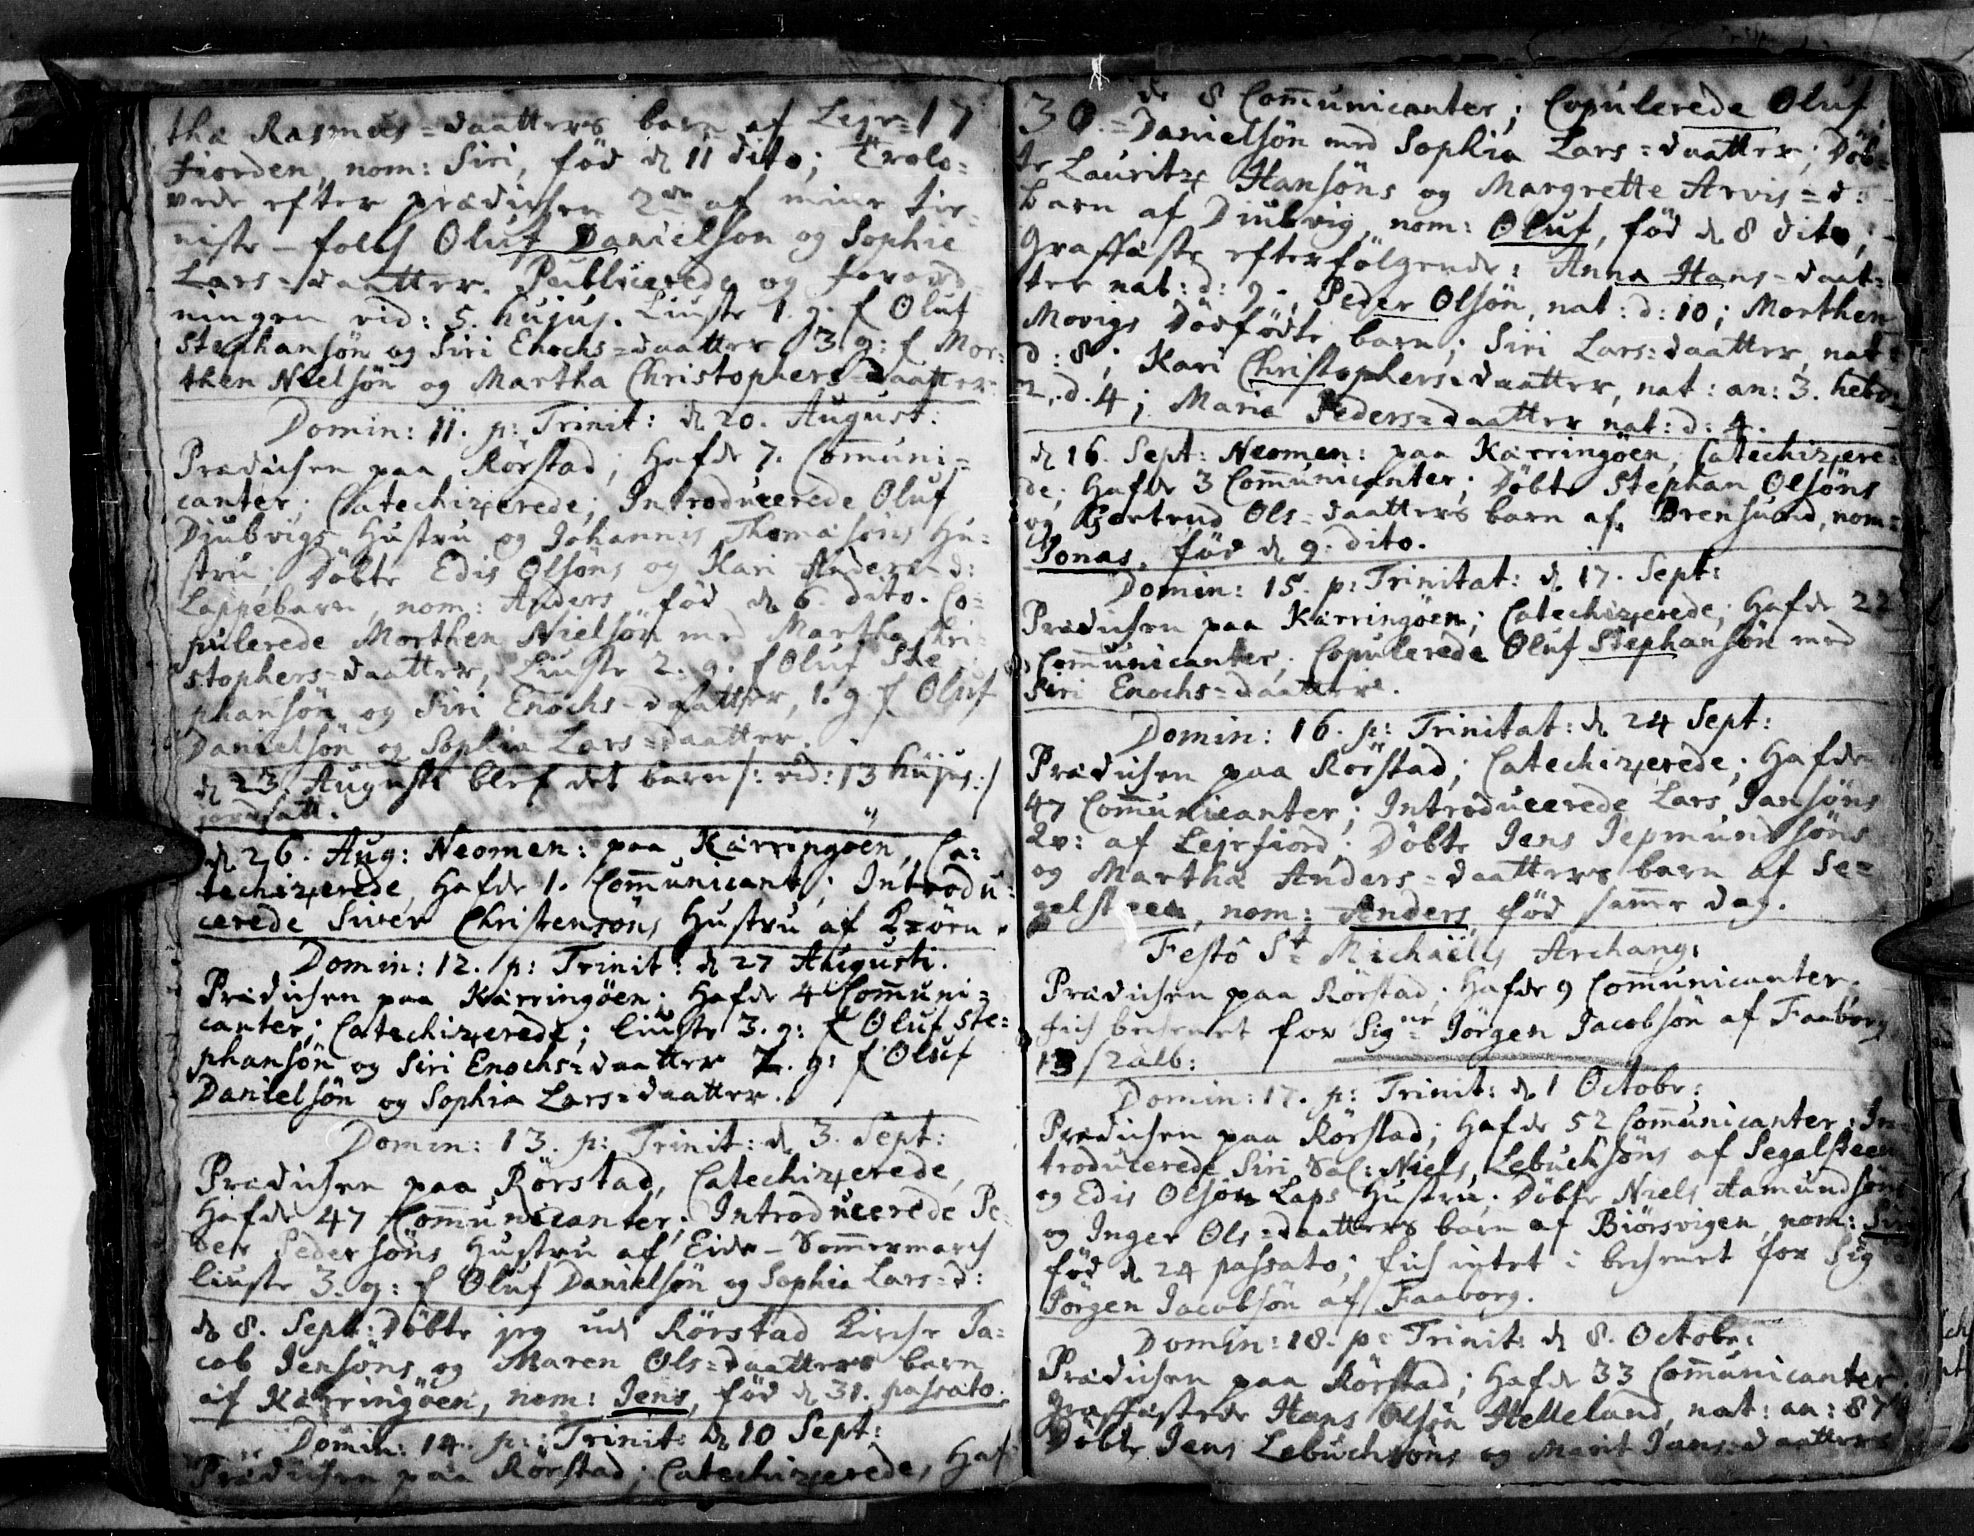 thæ Rasmus=daatters barn af Lejr=17
fiorden, nom: Siri, fød d 11 dito; Trolo=
vede efter prædichen 2de af mine tie=
niste-folch Oluf Danielsøn og Sophie
Lars=daatter. Publicerede og forord=
ningen vid: 5. hujus. Liuste 1. g. f Oluf
Stephansøn og Siri Enochs=daatter 3 g: f Mor=
then Nielsøn og Martha Christophers=daatter
Domin: 11. p: Trinit: d 20. August:
Prædichen paa Rörstad; Hafde 7. Com̄uni=
canter; Catechizerede; Introducerede Oluf
Djubvigs Hustru og Johannis Thomæsøns Hu=
stru; Døbte Edis Olsøns og Kari Anders=d:
Lappebarn, nom: Anders, fød d 6. dito. Co=
pulerede Morthen Nielsøn med Martha Chri=
stophers=daatter, Liuste 2. g. f Oluf Ste=
phansøn og Siri Enochs=daatter, 1. g f Oluf
Danielsøn og Sophia Lars=daatter.
d 23. Augusti blef det barn /: vid: 13 hujus :/
jordsatt.
d 26. Aug: Neomen: paa Kærringøen, Ca=
techizerede, Hafde 1. Com̄unicant; Introdu=
cerede Siver Christensøns Hustru af
Domin: 12. p: Trinit: d 27 Augusti.
Prædichen paa Kærringøen; Hafde 4 Com̄uni=
canter; Catechizerede; liuste 3. g: f Oluf Ste=
phansøn og Siri Enochs=daatter 2. g: f Oluf
Danielsøn og Sophia Lars=daatter.
Domin: 13. p: Trinit: d 3. Sept:
Prædichen paa Rørstad, Catechizerede,
Hafde 47 Com̄unicanter; Introducerede Pe=
der Pedersøns Hustru af Eide-Som̄ermarch
liuste 3. g: f Oluf Danielsøn og Sophia Lars=d:
d 8. Sept: Døbte jeg udj Rörstad Kirche Ja=
cob Jensøns og Maren Ols=daatters barn
af Kærringøen, nom: Jens, fød d 31. passato.
Domin: 14. p: Trinit: d 10 Sept:
Prædichen paa Rørstad; Catechizerede, Haf=
30. de 8 Com̄unicanter; Copulerede Oluf
Danielsøn med Sophia Lars=daatter; Døb=
te Lauritz Hansøns og Margrette Arvis=d:
barn af Djubvig, nom: Oluf, fød d 8 dito;
Graffæste efterfølgende: Anna Hans=daat=
ter nat: d: 9., Peder Olsøn, nat: d: 10; Morthen
Movigs Dødfødte barn; Siri Lars=daatter, nat:
d: 8; Kari Christophers=daatter, nat: an: 3. hebd:
2, d. 4; Maria Peders=daatter nat: d: 4.
d 16. Sept: Neomen: paa Kærringøen, Catechizere=
de; Hafde 3 Com̄unicanter; Døbte Stephan Olsøns
og Giertrud Ols=daatters barn af Brensund, nom:
Jonas, fød d 9. dito.
Domin: 15. p: Trinitat: d 17. Sept:
Prædichen paa Kærringøen; Catechizerede; Hafde 22
Com̄unicanter; Copulerede Oluf Stephansøn med
Siri Enochs=daatter.
Domin: 16. p: Trinitat: d 24 Sept:
Prædichen paa Rörstad; Catechizerede; Hafde
47 Com̄unicanter; Introducerede Lars Jansøns
Qv: af Lejrfiord; Døbte Jens Jepmundsøns
og Martha Anders=daatters barn af Se=
gelsteen, nom: Anders, fød sam̄e dag.
Festô St Michaëlis Archang:
Prædichen paa Rörstad; Hafde 9 Com̄unicanter.
fich bechemet for Signr Jörgen Jacobsøn af Faaborg
Domin: 17. p: Trinit: d 1 Octobr:
Prædichen paa Rörstad; Hafde 52 Com̄unicanter; In=
troducerede Siri Sal: Niels Lebuchsøns af Segelsteen
og Edis Olsøn Laps Hustru; Døbte Niels Aamundsøns
og Inger Ols=daatters barn af Biörsvigen, nom: Siri
fød d 24 passato; fich intet i bechemet for Sig
Jörgen Jacobsøn af Faaborg.
Domin: 18. p: Trinit: d 8. Octobr:
Prædichen paa Rörstad; Hafde 33 Com̄unicanter
Graffæstede Hans Olsøn Helleland, nat: an: 87
Døbte Jens Lebuchsøns og Marit Jans=daatters